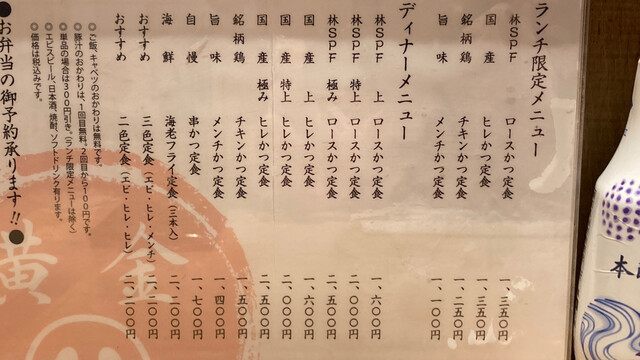 ランチ限定メニュー
林SPF ロースかつ定食 一、三五〇円
国産 ヒレかつ定食 一、三五〇円
銘柄鶏 チキンかつ定食 一、二五〇円
旨味 メンチかつ定食 一、一〇〇円
ディナーメニュー
林SPF 上 ロースかつ定食 一、六〇〇円
林SPF 特上 ロースかつ定食 二、〇〇〇円
林SPF 極み ロースかつ定食 二、五〇〇円
国産 上 ヒレかつ定食 一、六〇〇円
国産 特上 ヒレかつ定食 二、〇〇〇円
国産 極み ヒレかつ定食 二、五〇〇円
銘柄鶏 チキンかつ定食 一、五〇〇円
旨味 メンチかつ定食 一、四〇〇円
自慢 串かつ定食 一、七〇〇円
海鮮 海老フライ定食(三本入) 二、二〇〇円
おすすめ 三色定食(エビ・ヒレ・メンチ) 二、二〇〇円
おすすめ 二色定食(エビ・ヒレ・ヒレ) 二、二〇〇円
◎ご飯、キャベツのおかわりは無料です。
◎豚汁のおかわりは、1回目無料、2回目から100円です。
◎単品の場合は300円引き。(ランチ限定メニューは除く)
◎エビスビール、日本酒、焼酎、ソフトドリンク有ります。
◎価格は税込みです。
●お弁当の御予約承ります!!●
黄金
本